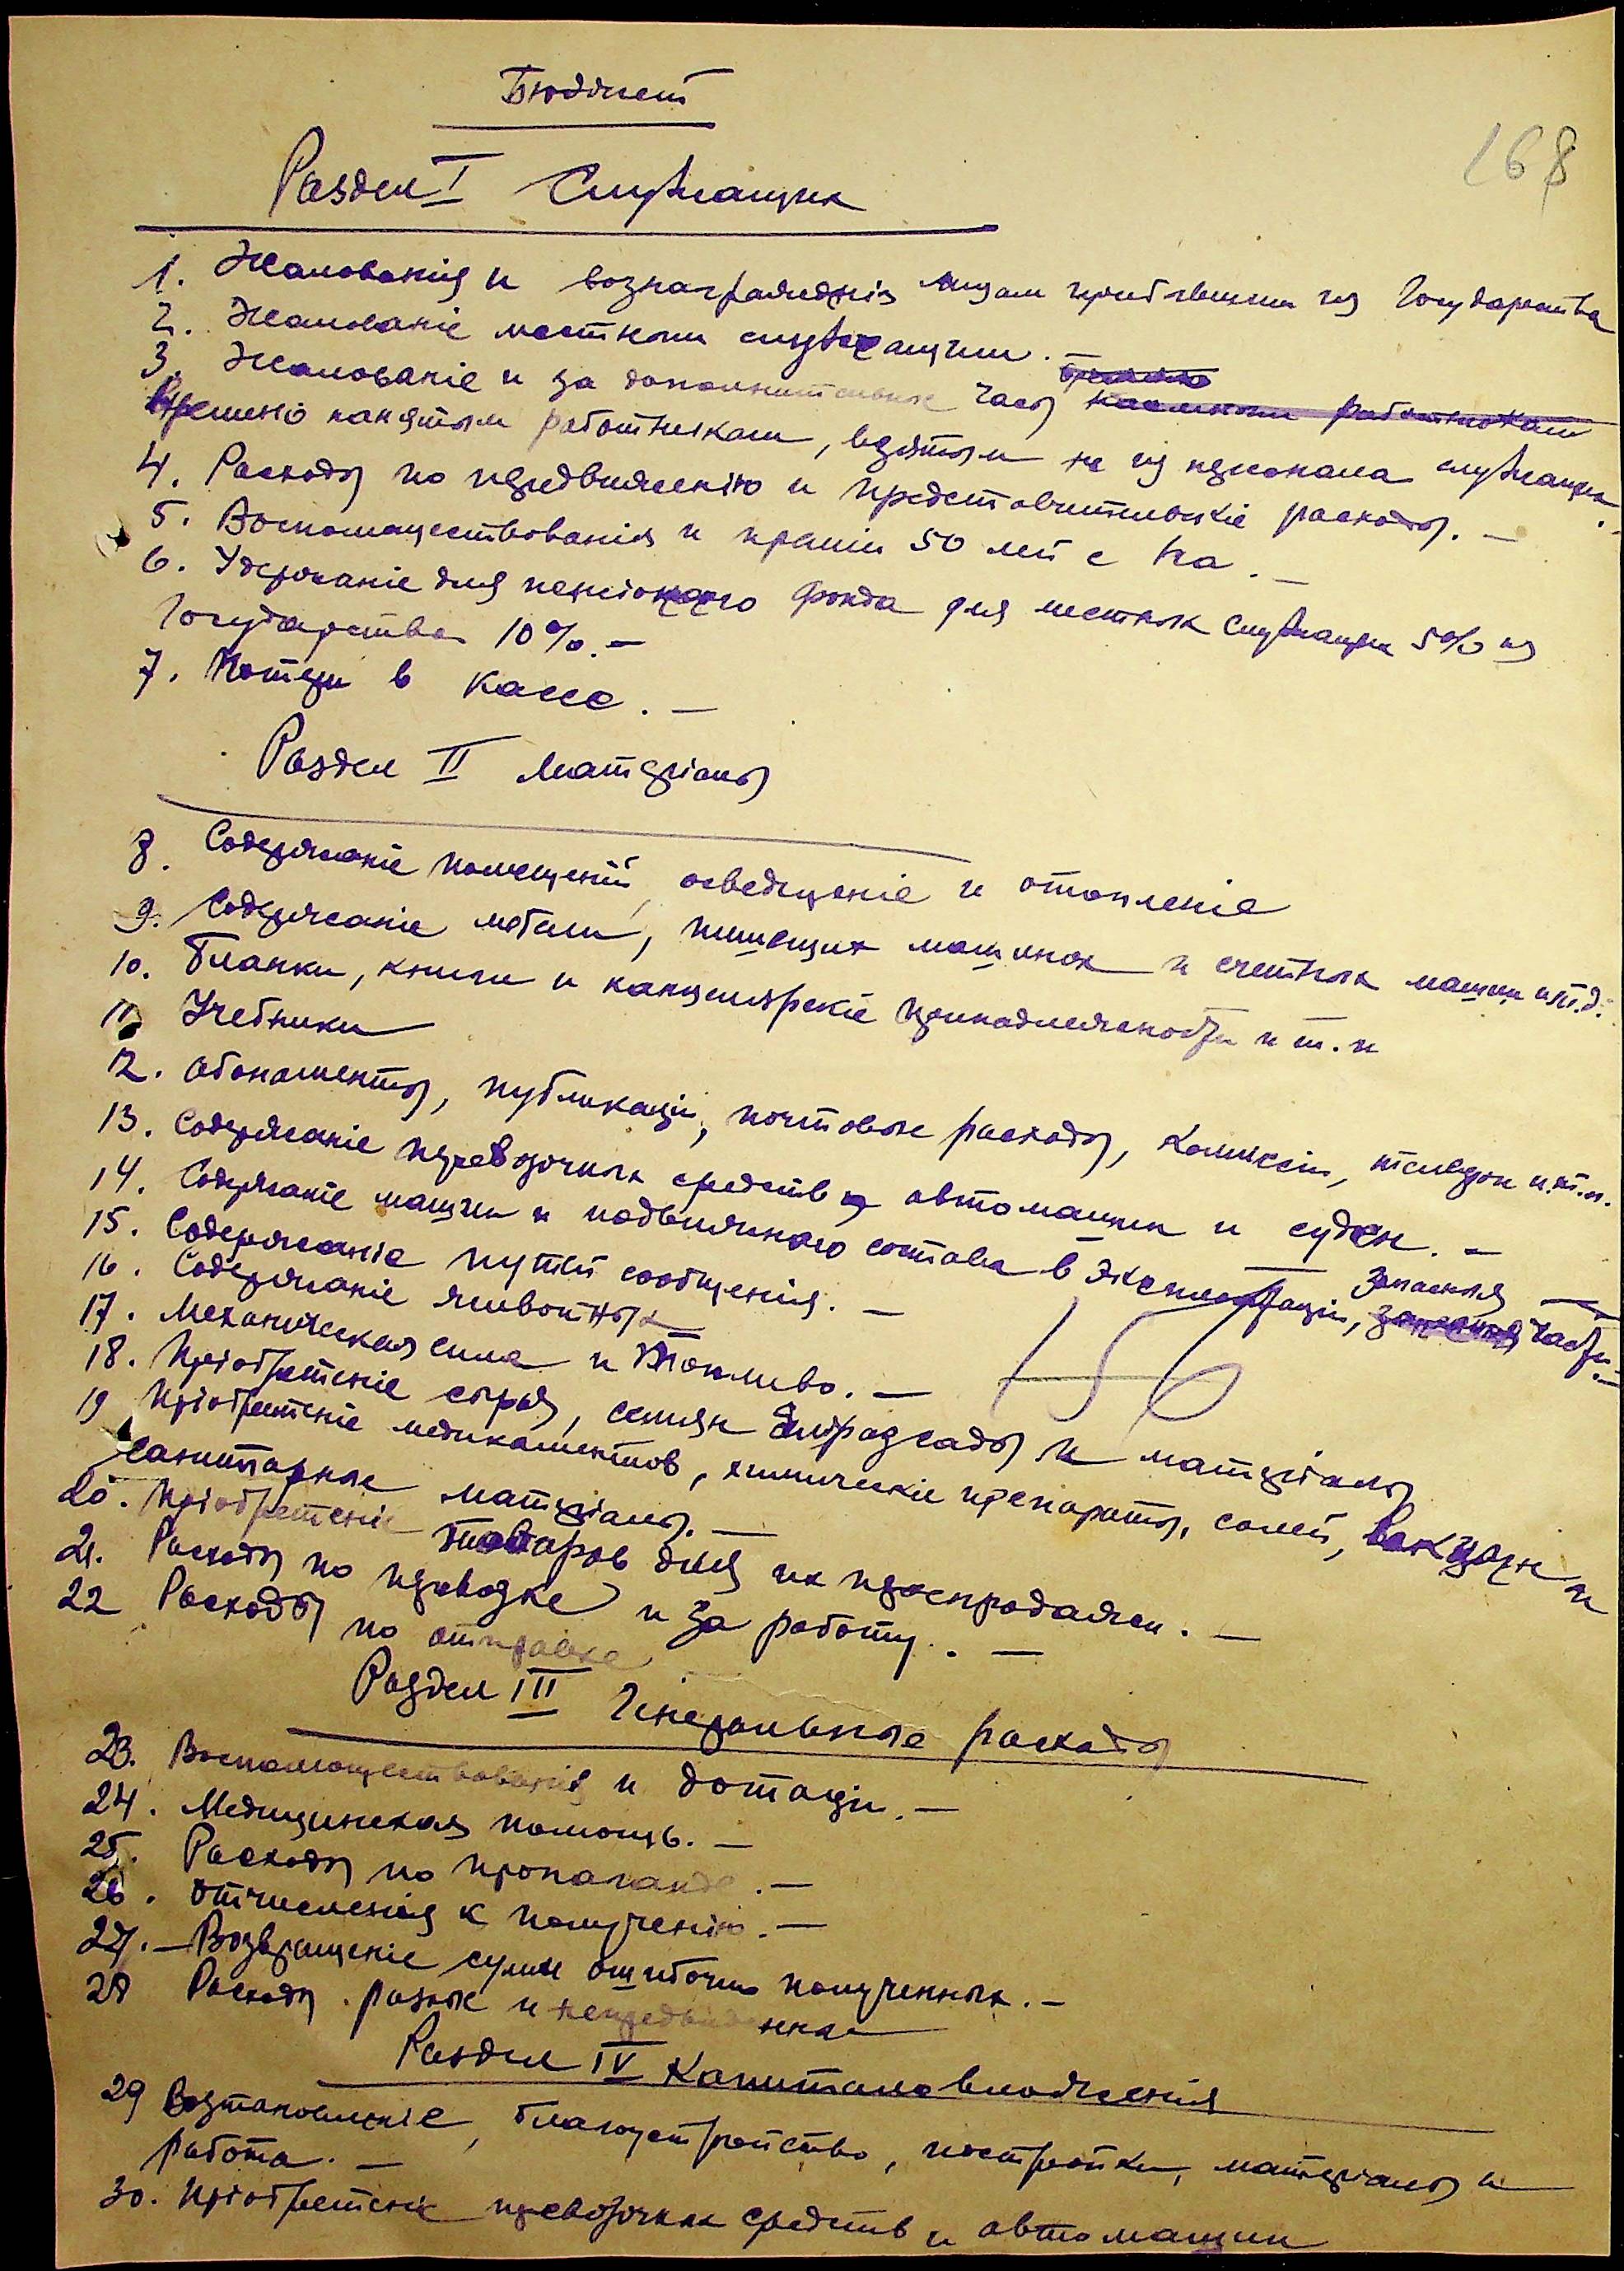 Бюджет
168
Раздел I Служащих
1. Жалованія и вознагражденія лицам прибывшим из Государства
2. Жалованіе местным служащим. —
3. Жалованіе и за дополнительные часы
временно нанятым работникам, взятым не из персонала служащих.
4. Расходы по передвиженію и представительскіе расходы. —
5. Воспомоществованія и преміи 50 лей с га. —
6. Удержаніе для пенсіонного фонда для местных служащих 5% из
Государства 10%. —
7. Потери в кассе. —
Раздел II Матеріалы
8. Содержаніе помещеній, освещеніе и отопленіе
9. Содержаніе мебели, пишущих машинок и счетных машин и т.д.
10. Бланки, книги и канцелярскіе принадлежности и т. п
11 Учебники
12. Абонаменты, публикаціи, почтовые расходы, комиссіи, телефон и.т.п.
13. Содержаніе перевозочных средств автомашин и суден. —
14. Содержаніе машин и подвижного состава в эксплоатаціи, запасныя части. —
15. Содержаніе путей сообщенія. —
16. Содержаніе животных
17. Механическая сила и топливо. —
156
18. Пріобретеніе сырья, семян и матеріалы
19 Пріобретеніе медикаментов, химическіе препараты, солей, вакцын и
санитарные матеріалы. —
20. Пріобретеніе товаров для их перепродажи. —
21. Расходы по провозке и за работу. —
22 Расходы по отправке
Раздел III Генеральные расходы
23. Воспомоществованія и дотаціи. —
24. Медицинская помощь. —
25. Расходы по пропаганде. —
26. Отчисленія к полученію. —
27. — Возвращеніе сумм ошибочно полученных. —
28 Расходы разные и непредвиденные
Раздел IV Капиталовложенія
29 Возтановленіе, благоустройство, постройки, матеріалы и
работа. —
30. Пріобретеніе перевозочных средств и автомашин